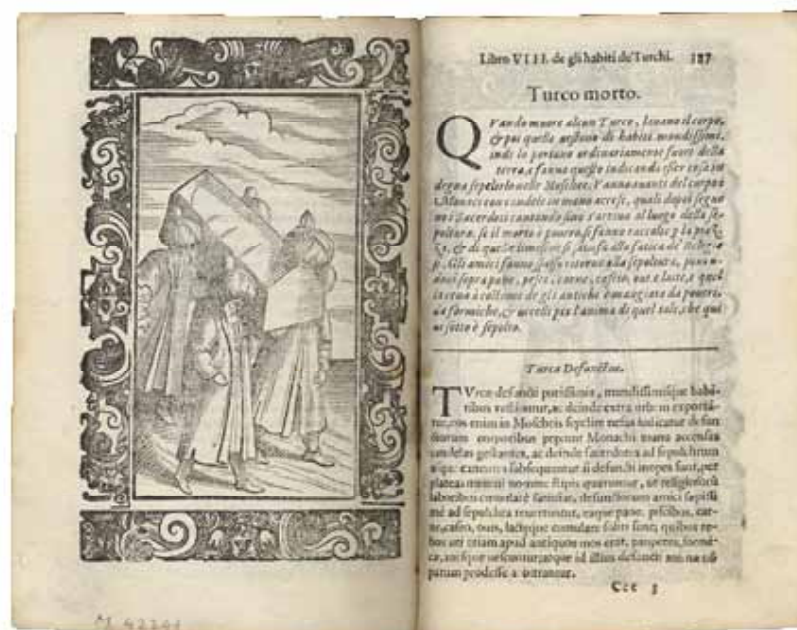 Libro VIII. de gli habiti de'Turchi. 387
Turco morto.
QVando muore alcun Turco, leuano il corpo,
& poi quello vestono di habiti mondissimi,
indi lo portano ordinariamente fuori della
terra, e fanno questo indicando esser cosa in
degna sepelirlo nelle Moschee. Vanno auanti del corpo i
Monaci con candele in mano accese, quali dopoi segue
no i Sacerdoti cantando sino s'ariua al luogo della se
poltura. se il morto è pouero, si fanno raccolte p le piaz
& di quelle limosine si satisfa alla fatica de'
gli amici fanno spesso ritorno alla sepoltura, pon
sopra pane, pesce, carne, cascio, oua e latte, e quel
la cena à costume de gli antichi è mangiata da poueri,
da formiche, & uccelli per l'anima di quel tale, che qui
ui sotto è sepolto.
Turca Defunctus.
TVrcæ defuncti purissimis, mundissimisque habi-
tibus vestiuntur, ac deinde extra urbem exportã
tur, eos enim in Moscheis sepelire nefas iudicatur defun
ctorum corporibus præeunt Monachi manu accensas
candelas gestantes, ac deinde sacerdotes ad sepulchrum
usque canentes subsequuntur si defuncti inopes sunt, per
plateas nummi nomine stipis quæruntur, ut religiosorũ
laboribus satisfiat, defunctorum amici sæpissi
mè ad sepulchra reuertuntur, eaque pane, piscibus, car
ne, caseo, ouis, lacteque cumulare soliti sunt; quibus re-
bus uti etiam apud antiquos mos erat, pauperes, formi
cæ, auesque uescuntur, atque id illius defuncti
patum prodesse arbitrantur.
Ccc 3
M 42241